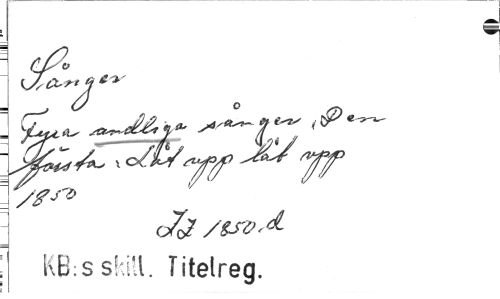 Sånger
Fyra andliga sånger, Den
första: Låt upp låt upp
1850
ZZ 1850.d
KB:s skill. Titelreg.